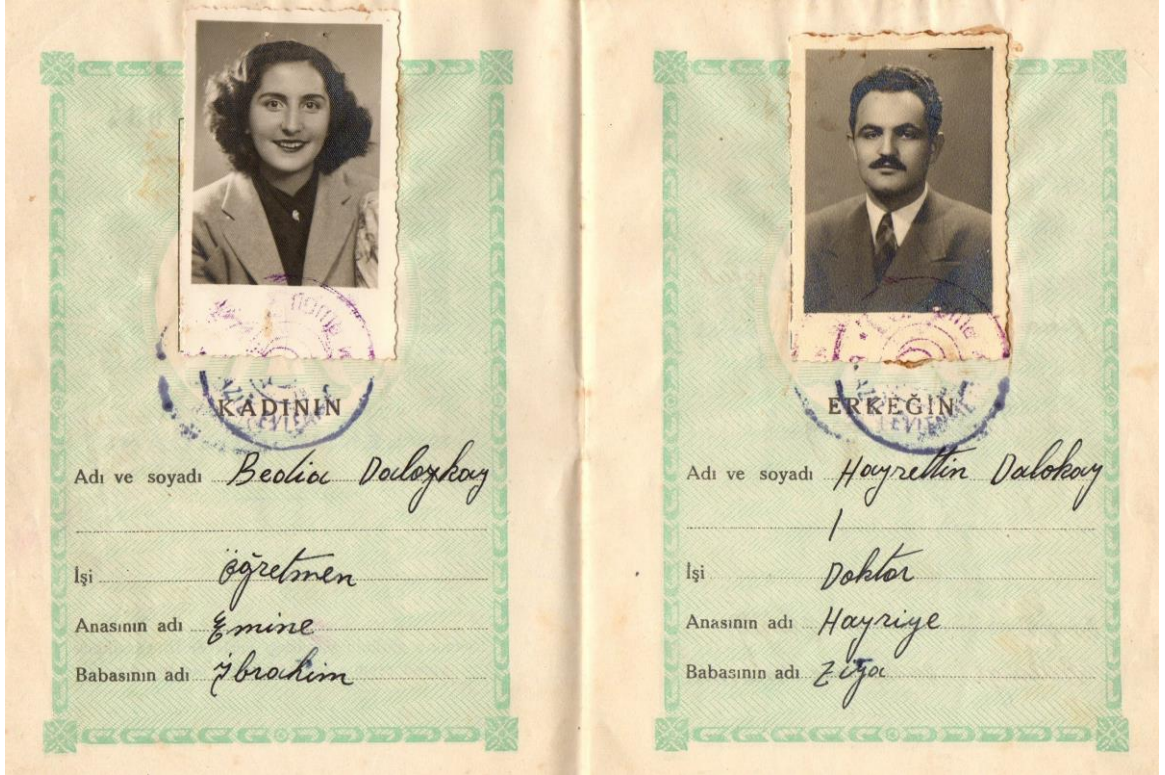 KADININ
Adı ve soyadı Bedia Dalozkay
İşi Öğretmen
Anasının adı Emine
Babasının adı İbrahim
ERKEĞİN
Adı ve soyadı Hayrettin Dalokay
İşi Doktor
Anasının adı Hayriye
Babasının adı Ziya